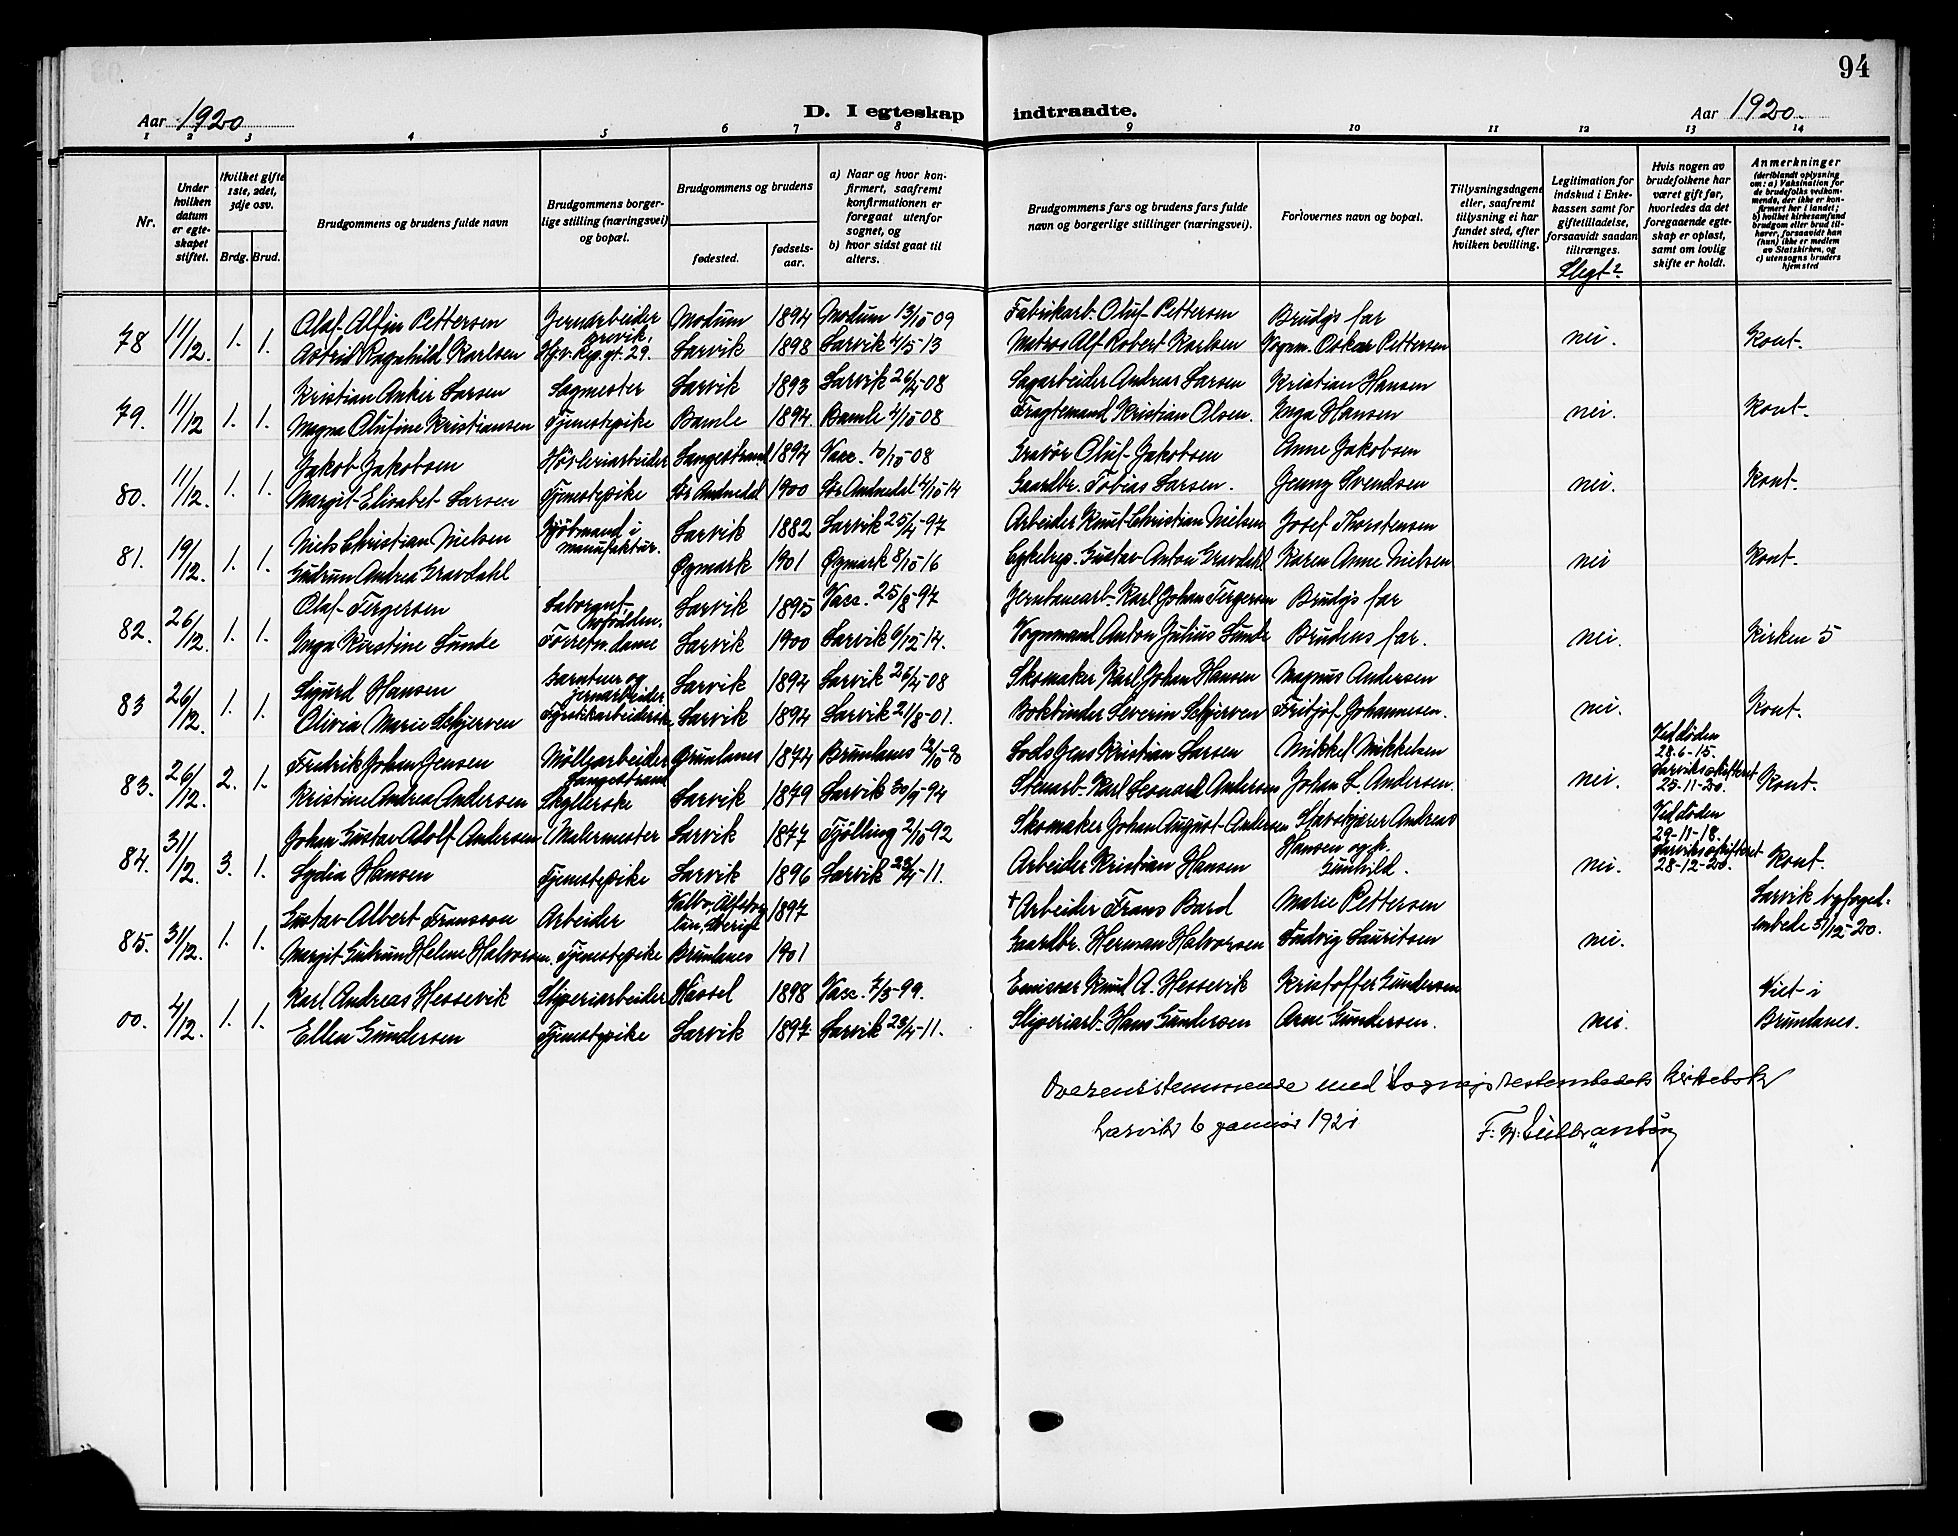 94
Aar 1920 D. I egteskap indtraadte. Aar 1920.
1 2 3 4 5 6 7 8 9 10 11 12 13 14
Nr.
Under hvilken datum er egteskapet stiftet.
Hvilket gifte 1ste, 2det, 3dje osv.
Brdg. Brud.
Brudgommens og brudens fulde navn
Brudgommens borgerlige stilling (næringsvei) og bopæl.
Brudgommens og brudens
fødested. fødselsaar.
a) Naar og hvor konfirmert, saafremt konfirmationen er foregaat utenfor sognet, og
b) hvor sidst gaat til alters.
Brudgommens fars og brudens fars fulde navn og borgerlige stillinger (næringsvei).
Forlovernes navn og bopæl.
Tillysningsdagene eller, saafremt tillysning ei har fundet sted, efter hvilken bevilling.
Legitimation for indskud i Enkekassen samt for giftetilladelse, forsaavidt saadan tiltrænges.
Slegt?
Hvis nogen av brudefolkene har været gift før, hvorledes da det foregaaende egteskap er opløst, samt om lovlig skifte er holdt.
Anmerkninger (deriblandt oplysning om: a) Vaksination for de brudefolks vedkommende, der ikke er konfirmert her i landet; b) hvilket kirkesamfund brudgom eller brud tilhører, forsaavidt han (hun) ikke er medlem av Statskirken, og c) utensogns bruders hjemsted
78 11/12. 1. 1. Olaf Alfin Pettersen Jernarbeider Brevik. Modum 1894 Modum 13/10-09 Fabrikarb. Oluf Pettersen Brudgs far
Astrid Ragnhild Karlsen Hj.v. Reg. gt. 29. Larvik 1898 Larvik 4/5-13 Matros Alf Robert Karlsen Vognm. Oskar Pettersen nei. Kont.
79. 11/12 1. 1. Kristian Anker Larsen Sagmester Larvik 1893 Larvik 26/4-08 Sagarbeider Andreas Larsen Kristian Hansen
Magna Olufine Kristiansen Tjenestepike Bamle 1894. Bamle 4/10-08 Fragtemand Kristian Olsen. Inga Hansen nei. Kont.
80. 11/12. 1. 1. Jakob Jakobsen Høvleriarbeider Langestrand 1894 Vacc. 10/10-08 Gravør Oluf Jakobsen Anne Jakobsen
Margit Elisabet Larsen Tjenestepike Sør Audnedal 1900 Sør Audnedal 4/10-14 Gaardbr. Tobias Larsen. Jenny Svendsen nei. Kont.
81. 19/12. 1. 1. Niels Christian Nielsen Kjøbmand i manufaktur. Larvik 1882 Larvik 25/4-97 Arbeider Knut Christian Nielsen Josef Thorstensen
Gudrun Andrea Gravdahl Øymark 1901 Øymark 8/10-16 Cykelrep. Gustav Anton Gravdahl Karen Anne Nielsen nei Kont.
82. 26/12. 1. 1. Olaf Tergersen Laborant, Larvik 1895 Vacc. 25/8-97 Jernbanearb. Karl Johan Tergersen Brudgs far
Inga Kirstine Lunde Forretn. dame Larvik 1900 Larvik 4/10-14. Vognmand Anton Julius Lunde Brudens far. nei. Kirken 5
83 26/12. 1. 1. Sigurd Hansen Gartner og jernarbeider Larvik 1894 Larvik 26/4-08 Skomaker Karl Johan Hansen Magnus Andersen
Olivia Marie Schjerven Fyrstikarbeiderske Larvik 1894 Larvik 21/8-01. Bokbinder Severin Schjerven Fritjof Johannesen. nei. Kont.
83. 26/12. 2. 1. Fredrik Johan Jensen Møllearbeider Langestrand Brunlanes 1874 Brunlanes 12/10-90 Lods Jens Kristian Larsen Mikkel Mikkelsen Ved døden 28-6-15.
Kristine Andrea Andersen Skyllerske Larvik 1879 Larvik 30/9-94 Stenarb. Karl Leonard Andersen Johan L. Andersen. nei. Larvik skifteret 25-11-20. Kont.
84. 31/12. 3. 1. Johan Gustav Adolf Andersen Malermester Larvik 1877 Tjølling 2/10-92 Skomaker Johan August Andersen Stavskjærer Andreas Hansen og h. Gunhild. Ved døden 29-11-18.
Lydia Hansen Tjenestepike Larvik 1896 Larvik 23/4-11. Arbeider Kristian Hansen nei. Larvik skifteret 28-12-20. Kont.
85. 31/12. 1. 1. Gustav Albert Fransson Arbeider län, Sverige 1897 † Arbeider Frans Bard Marie Pettersen Larvik byfoged-
Margit Gudrun Helene Halvorsen. Tjenestepike Brunlanes 1901 Gaardbr. Herman Halvorsen Ludvig Lauritsen nei. embede 31/12-20.
00. 4/12. 1. 1. Karl Andreas Hessevik Sliperiarbeider Hassel 1898 Vacc. 7/3-99. Emissær Knut A. Hessevik Kristoffer Gundersen Viet i
Ellen Gundersen Tjenestepike Larvik 1897 Larvik 23/4-11. Sliperiarb. Hans Gundersen Arne Gundersen. nei. Brunlanes.
Overensstemmende med Sogneprestembedets kirkebok
Larvik 6 januar 1921